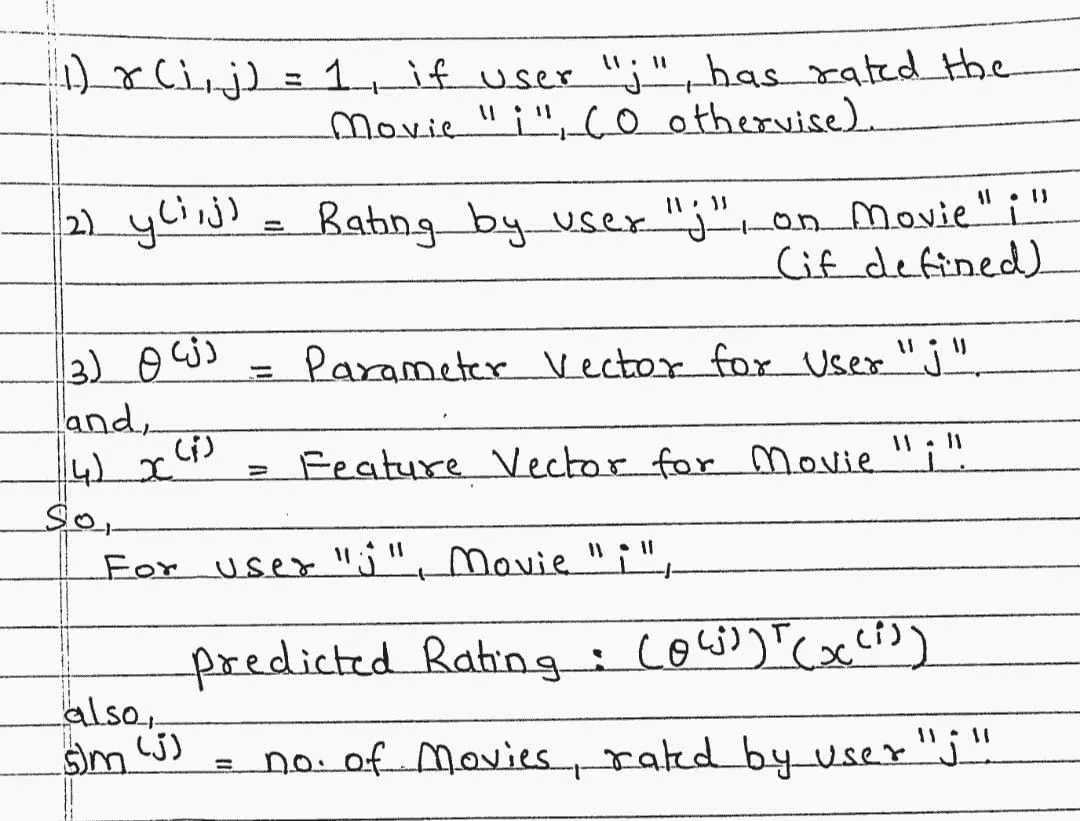 1) r(i,j) = 1, if user "j", has rated the
Movie "i", (0 othervise).
2) y(i,j) = Rating by user "j", on Movie "i"
(if defined)
3) θ(j) = Parameter Vector for User "j".
and,
4) x(i) = Feature Vector for Movie "i".
So,
For user "j", Movie "i",
predicted Rating : (θ(j))ᵀ(x(i))
also,
5) m(j) = no. of Movies, rated by user "j".